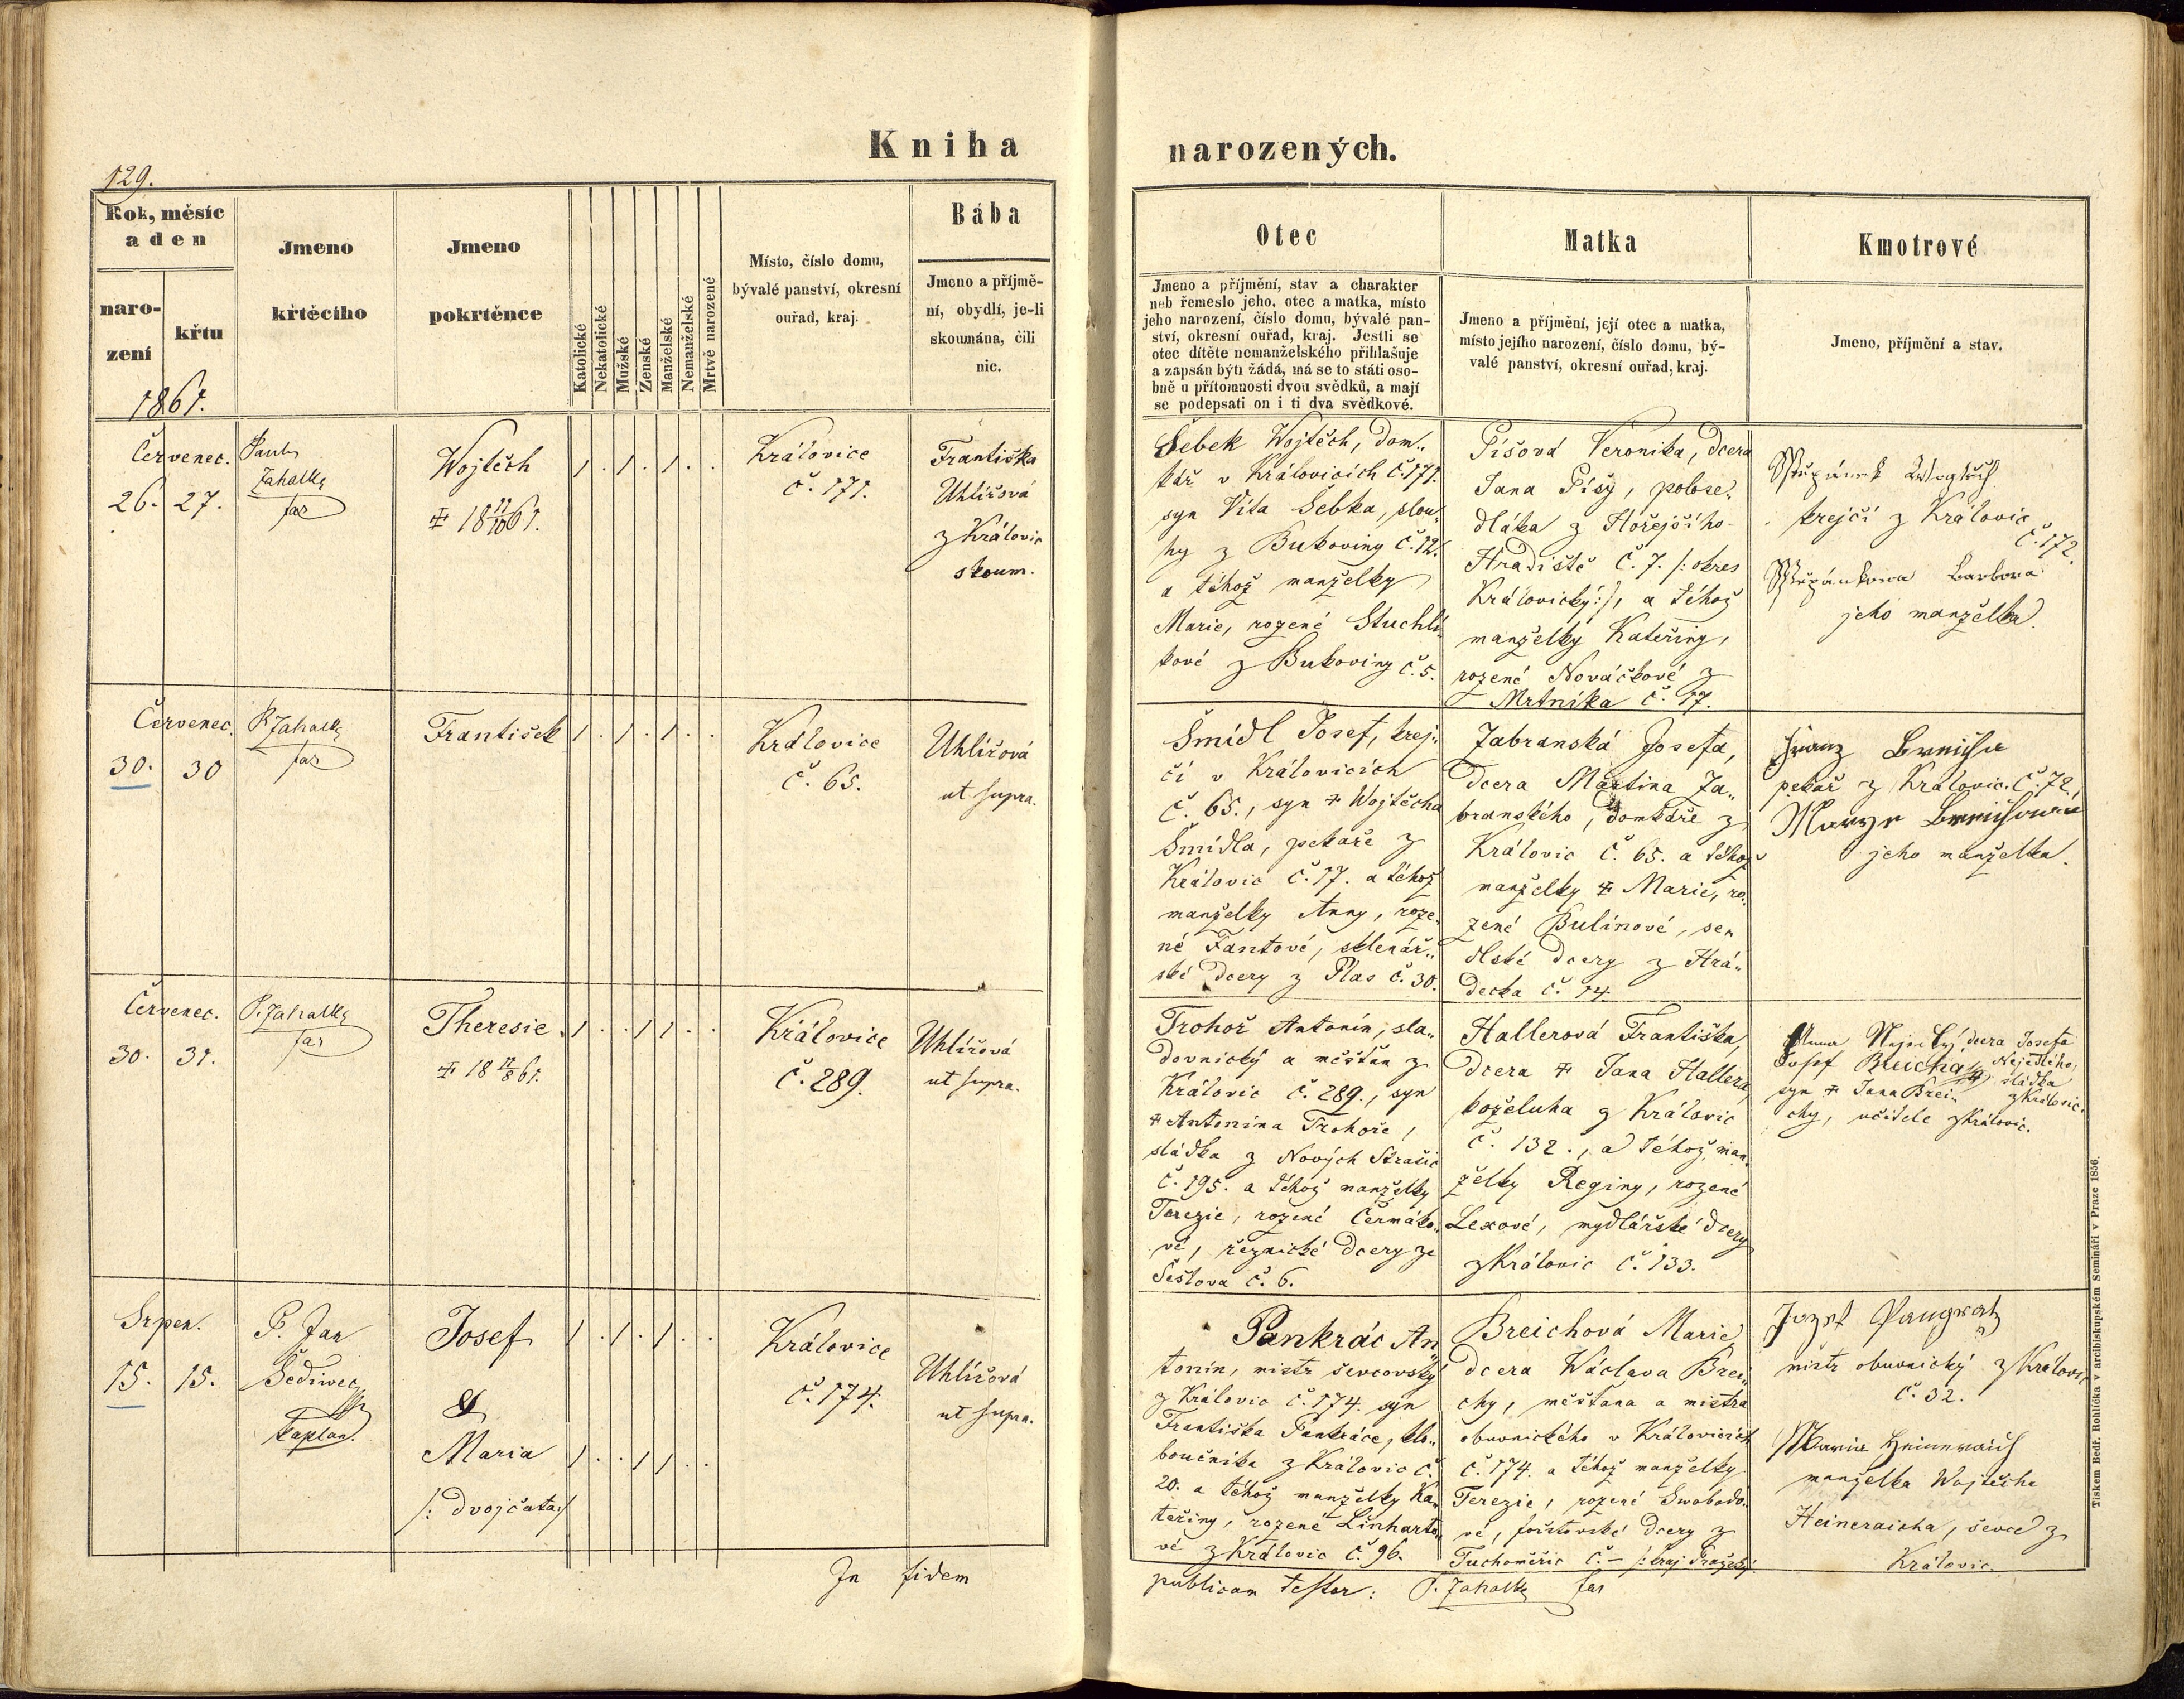 Kniha
129.
Rok, měsíc
a den
naro-
zení
křtu
1861.
Jmeno
křtěcího
Jmeno
pokrtěnce
Katolické
Nekatolické
Mužské
Ženské
Manželské
Nemanželské
Mrtvě narozené
Místo, číslo domu,
bývalé panství, okresní
ouřad, kraj.
Bába
Jmeno a příjmě-
ní, obydlí, je-li
skoumána, čili
nic.
Červenec.
26. 27.
Zahalka
far
Wojtěch
18 11/10 61.
Královice
č. 171.
Františka
Uhlířová
z Královic
skoum.
Červenec.
30. 30
P. Zahalka
far
František
Královice
č. 65.
Uhlířová
ut supra.
Červenec.
30. 31.
P. Zahalka
far
Theresie
Královice
č. 289.
Uhlířová
ut supra.
Srpen.
15. 15.
P. Jan
Šediwec
kaplan.
Josef
&
Maria
/: dvojčata :/
Královice
č. 174.
Uhlířová
ut supra.
In fidem
narozených.
Otec
Jmeno a příjmění, stav a charakter
neb řemeslo jeho, otec a matka, místo
jeho narození, číslo domu, bývalé pan-
ství, okresní ouřad, kraj. Jestli se
otec dítěte nemanželského přihlašuje
a zapsán býti žádá, má se to státi oso-
bně u přítomnosti dvou svědků, a mají
se podepsati on i ti dva svědkové.
Matka
Jmeno a příjmění, její otec a matka,
místo jejího narození, číslo domu, bý-
valé panství, okresní ouřad, kraj.
Kmotrové
Jmeno, příjmění a stav.
Šebek Wojtěch, dom„
kář v Královicích č. 171.
syn Víta Šebka, slou„
hy z Bukoviny č. 12.
a téhož manželky
Marie, rozené Stuchlí„
kové z Bukoviny č. 5.
Píšová Veronika, dcera
Jana Píšy, polose„
dláka z Hořejšího-
Hradiště č. 7. /: okres
Královický :/, a téhož
manželky Kateřiny,
rozené Nováčkové z
Mrtníka č. 17.
Štěpánek Wojtěch
krejčí z Královic
č. 172.
Štěpánkowa Barbora
jeho manželka.
Šmídl Josef, krej„
čí v Královicích
č. 65., syn ✝ Wojtěcha
Šmídla, pekaře z
Královic č. 17. a téhož
manželky Anny, roze„
né Fantové, sklenář„
ské dcery z Plas č. 30.
Zabranská Josefa,
dcera Martina Za„
branského, domkáře z
Královic č. 65. a téhož
manželky ✝ Marie, ro„
zené Bulínové, se„
dlské dcery z Hrá„
decka č. 14.
Franz Breicha
pekař z Královic č. 72.
jeho manželka.
Trohoř Antonín, sla„
dovnický a měšťan z
Královic č. 289., syn
✝ Antonína Trohoře,
sládka z Nových Strašic
č. 195. a téhož manželky
Terezie, rozené Čermáko„
vé, řeznické dcery ze
Šestova č. 6.
Hallerová Františka,
dcera ✝ Jana Hallera,
koželuha z Královic
č. 132., a téhož man„
želky Reginy, rozené
Lexové, mydlářské dcery
z Královic č. 133.
dcera Josefa
Nejedlého,
sládka
z Královic.
Josef Breicha
syn ✝ Jana Brei„
chy, učitele z Královic.
Pankrác An„
tonín, mistr ševcovský
z Královic č. 174. syn
Františka Pankráce, klo„
boučníka z Královic č.
20. a téhož manželky Ka„
teřiny, rozené Linharto„
vé z Královic č. 96.
Breichová Marie
dcera Wáclava Brei„
chy, měšťana a mistra
obuvnického v Královicích
č. 174. a téhož manželky
Terezie, rozené Swobodo„
vé, foištovské dcery z
Tuchoměřic č. – /: kraj Pražský.
Jozef Pangratz
mistr obuvnický z Královic
č. 32.
Maria Heinereich
manželka Wojtěcha
Heineraicha, ševce z
Královic.
publicam testor: P. Zahalka far
Tiskem Bedř. Rohlíčka v arcibiskupském Semináři v Praze 1856.